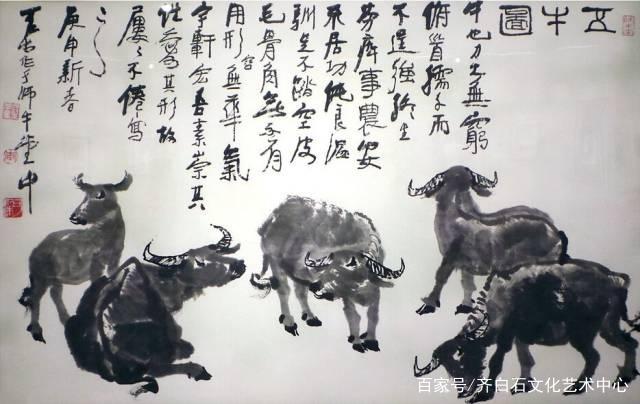 五牛圖
牛也力大無窮
俯首孺子而
不逞強終生
勞瘁事農安
不居功純良溫
馴足不踏空皮
毛骨角無不有
用形容無華氣
宇軒宏吾素崇其
性愛其形故
屢屢不倦寫
之
庚申新春
可染作于師牛堂中
百家号/齐白石文化艺术中心